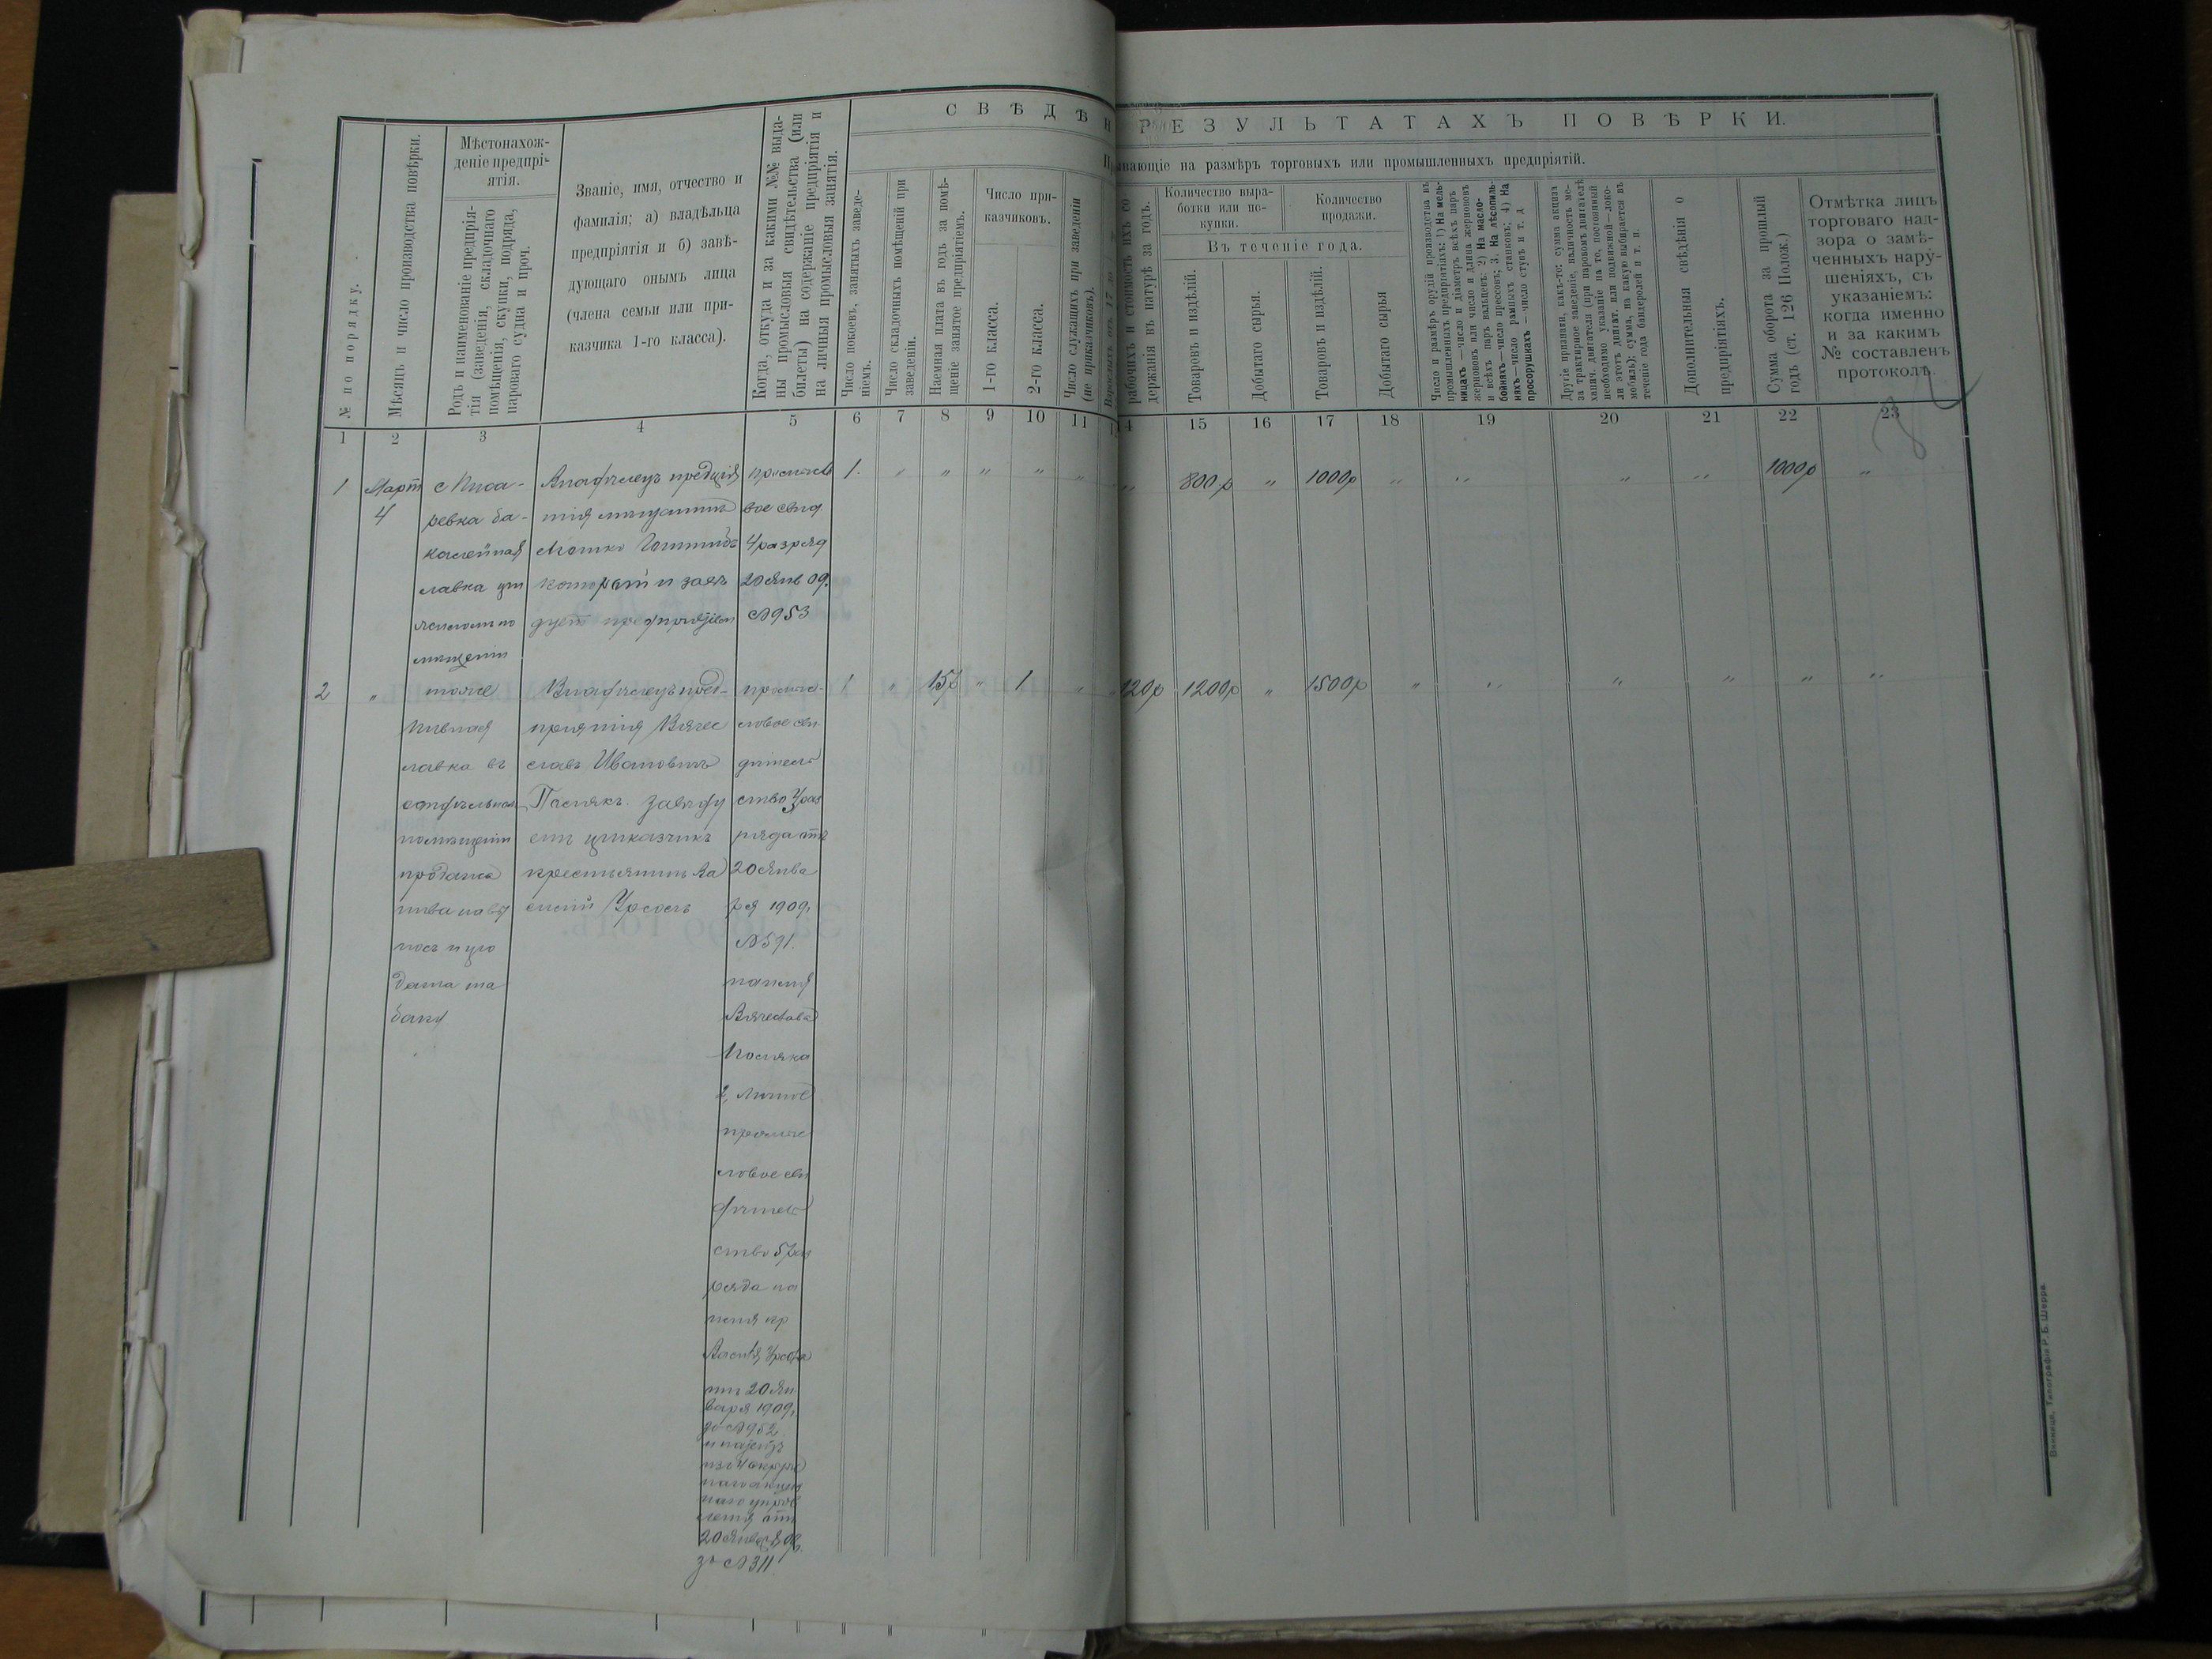 СВѢДѢН
РЕЗУЛЬТАТАХЪ ПОВѢРКИ.
ывающіе на размѣръ торговыхъ или промышленныхъ предпріятій.
№ по порядку.
Мѣсяцъ и число производства повѣрки.
Мѣстонахож-
деніе предпрі-
ятія.
Родъ и наименованіе предпрія-
тія (заведенія, складочнаго
помѣщенія, скупки, подряда,
пароваго судна и проч.
Званіе, имя, отчество и
фамилія; а) владѣльца
предпріятія и б) завѣ-
дующаго онымъ лица
(члена семьи или при-
казчика 1-го класса).
Когда, откуда и за какими №№ выда-
ны промысловыя свидѣтельства (или
билеты) на содержаніе предпріятія и
на личныя промысловыя занятія.
Число покоевъ, занятыхъ заведе-
ніемъ.
Число складочныхъ помѣщеній при
заведеніи.
Наемная плата въ годъ за помѣ-
щеніе занятое предпріятіемъ.
Число при-
казчиковъ.
1-го класса.
2-го класса.
Число служащихъ при заведеніи
(не приказчиковъ).
рабочихъ и стоимость ихъ со
держанія въ натурѣ за годъ.
Количество выра-
ботки или по-
купки.
Количество
продажи.
Въ теченіе года.
Товаровъ и издѣлій.
Добытаго сырья.
Товаровъ и издѣлій.
Добытаго сырья
Число и размѣръ орудій производства въ
промышленныхъ предпріятіяхъ: 1) На мель-
ницахъ—число и діаметръ всѣхъ паръ
жернововъ или число и длина жернововъ
и всѣхъ паръ вальцевъ; 2) На масло-
бойняхъ—число прессовъ; 3. На лѣсопиль-
няхъ—число рамныхъ станковъ; 4) На
просорушкахъ—число ступъ и т. д
Другіе признаки, какъ-то: сумма акциза
за трактирное заведеніе, наличность ме-
ханич. двигателя (при паровомъ двигателѣ
необходимо указаніе на то, постоянный
ли этотъ двигат. или подвижной—локо-
мобиль); сумма, на какую выбирается въ
теченіе года бандеролей и т. п.
Дополнительныя свѣдѣнія о
предпріятіяхъ.
Сумма оборота за прошлый
годъ (ст. 126 Полож.)
Отмѣтка лицъ
торговаго над-
зора о замѣ-
ченныхъ нару-
шеніяхъ, съ
указаніемъ:
когда именно
и за какимъ
№ составленъ
протоколъ.
1 2 3 4 5 6 7 8 9 10 11
4 15 16 17 18 19 20 21 22 23
1 Март 4
с Писа-
ревка ба-
калейная
лавка при
жилом по
мещеніи
Владѣлецъ предпрія
тія мещанинъ
завѣ
дуетъ предпріятіем
промысло
вое свид
4 разряд
20 Янв 09.
№953
1. " " " " " " 800р " 1000р " " " " 1000р "
2 "
тоже
Пивная
лавка въ
отдѣльном
помещеніи
продажа
пива на вы
носъ и про
дажа та
баку
Владѣлецъ пред-
пріятія Вячес
славъ Ивановичъ
Полякъ. Завѣду
етъ приказчикъ
крестьянинъ Ва
силій Урсолъ
промыс-
ловое сви
дѣтель
ство 3 раз
ряда отъ
20 Янва
ря 1909.
№591.
на имя
Вячеслава
Поляка
2, личное
промыс
ловое сви
дѣтель
ство 5 раз
ряда на
имя кр
Василія
отъ 20 Ян
варя 1909,
№952
и патентъ
из 4 окруж
наго акциз
наго управ
ленія отъ
20 Января 09.
за №311.
1 " 15р " 1 " " 120р 1200р " 1500р " " " " " "
Винница, Типографія Р. Б. Шерра.